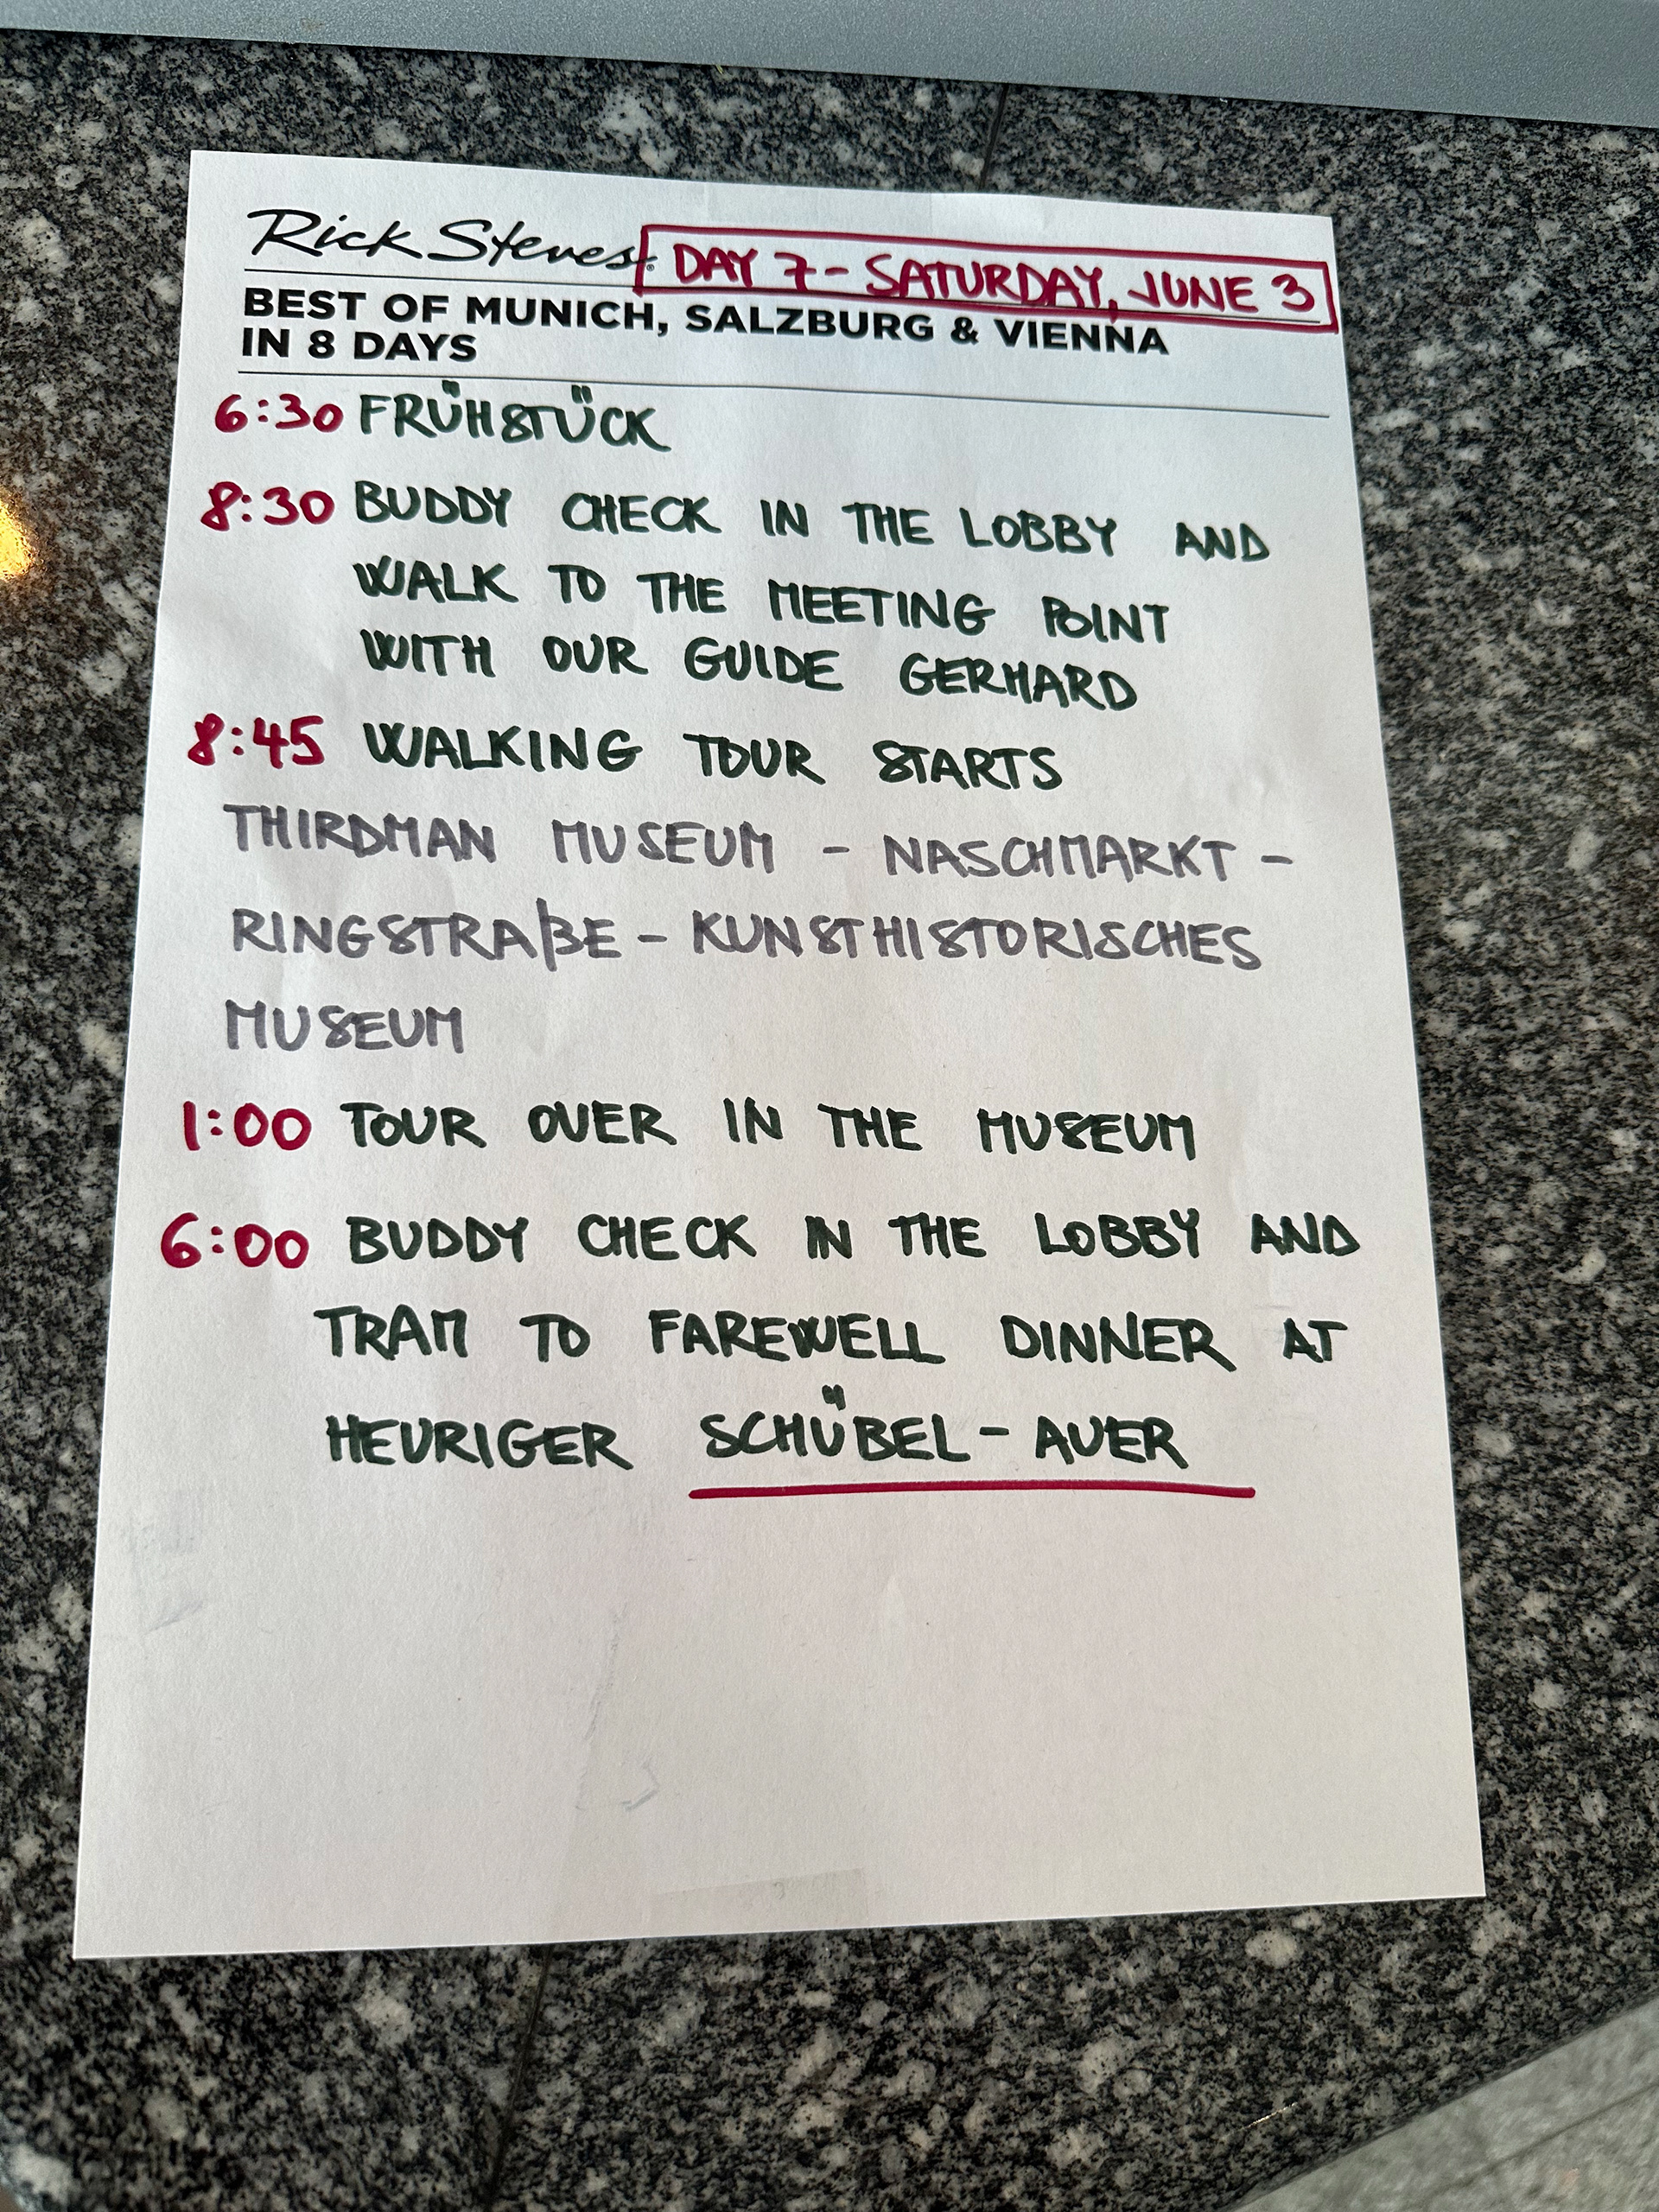 Rick Steves® DAY 7 - SATURDAY, JUNE 3
BEST OF MUNICH, SALZBURG & VIENNA
IN 8 DAYS
6:30 FRÜHSTÜCK
8:30 BUDDY CHECK IN THE LOBBY AND
WALK TO THE MEETING POINT
WITH OUR GUIDE GERHARD
8:45 WALKING TOUR STARTS
THIRDMAN MUSEUM - NASCHMARKT -
RINGSTRAßE - KUNSTHISTORISCHES
MUSEUM
1:00 TOUR OVER IN THE MUSEUM
6:00 BUDDY CHECK IN THE LOBBY AND
TRAM TO FAREWELL DINNER AT
HEURIGER SCHÜBEL - AUER